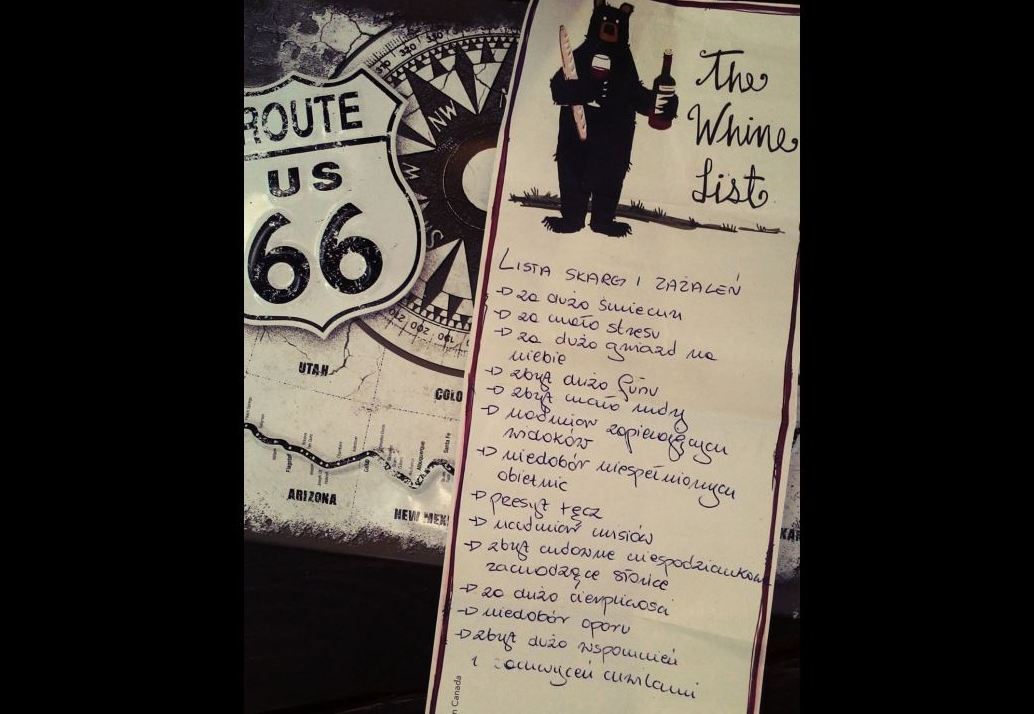 ROUTE
US
66
310
320
330
NW
W
UTAH
COLO
Flagstaff
Gallup
Albuquerque
Santa Fe
ARIZONA
NEW MEXI
KAN
The
Whine
List
LISTA SKARG I ZAŻALEŃ
→ za dużo śmiechu
→ za mało stresu
→ za dużo gwiazd na
niebie
→ zbyt dużo funu
→ zbyt mało nudy
→ nadmiar zapierających
widoków
→ niedobór niespełnionych
obietnic
→ przesyt tęcz
→ nadmiar misiów
→ zbyt cudowne niespodziankowo
zachodzące słońce
→ za dużo cierpliwości
→ niedobór oporu
→ zbyt dużo wspomnień
i zachwyceń chwilami
n Canada